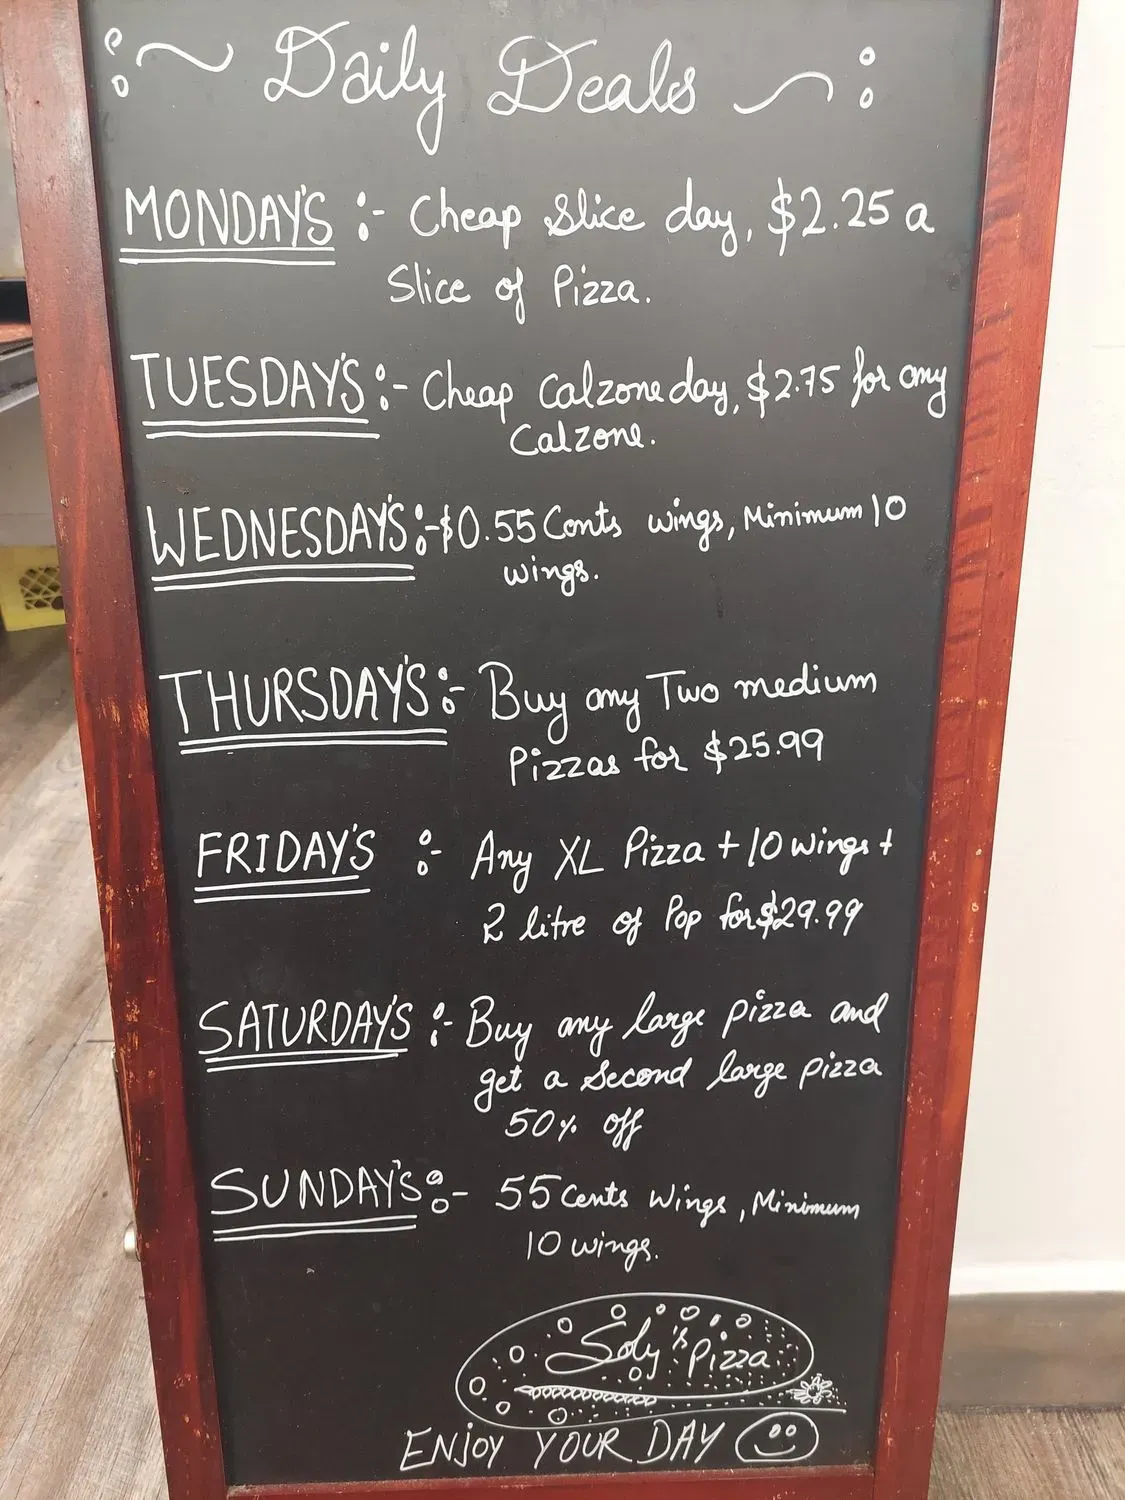 Daily Deals
MONDAY'S :- Cheap Slice day, $2.25 a
Slice of Pizza.
TUESDAY'S :- Cheap Calzone day, $2.75 for any
Calzone.
WEDNESDAY'S :- $0.55 Cents wings, Minimum 10
wings.
THURSDAY'S :- Buy any Two medium
Pizzas for $25.99
FRIDAY'S :- Any XL Pizza + 10 wings +
2 litre of Pop for $29.99
SATURDAY'S :- Buy any large pizza and
get a Second large pizza
50% off
SUNDAY'S :- 55 Cents Wings, Minimum
10 wings.
Soly's Pizza
ENJOY YOUR DAY